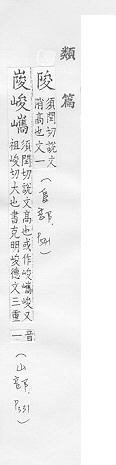 類篇
陖須閏切說文
陗高也文一(𨸏部, P.541)
𡺲峻㠑須閏切說文高也或作峻㠑峻又
祖峻切大也書克明峻德文三重
音一(山部, P.331)